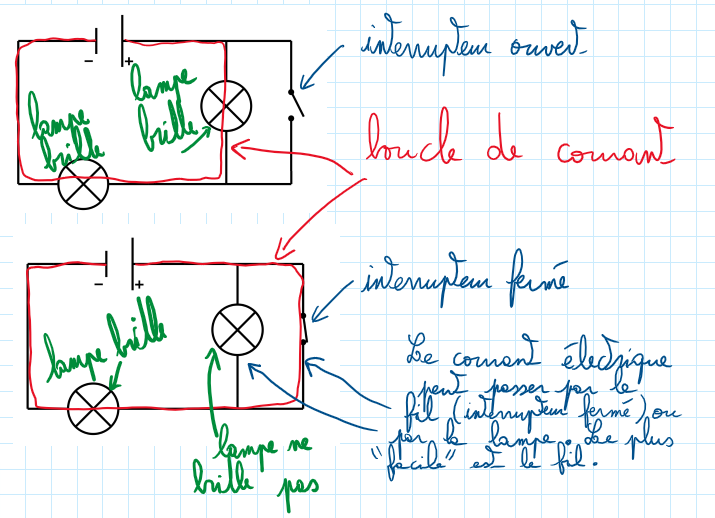 interrupteur ouvert
- +
lampe
brille
lampe
brille
boucle de courant
- +
interrupteur fermé
lampe brille
Le courant électrique
peut passer par le
fil (interrupteur fermé) ou
par la lampe. Le plus
"facile" est le fil.
lampe ne
brille pas